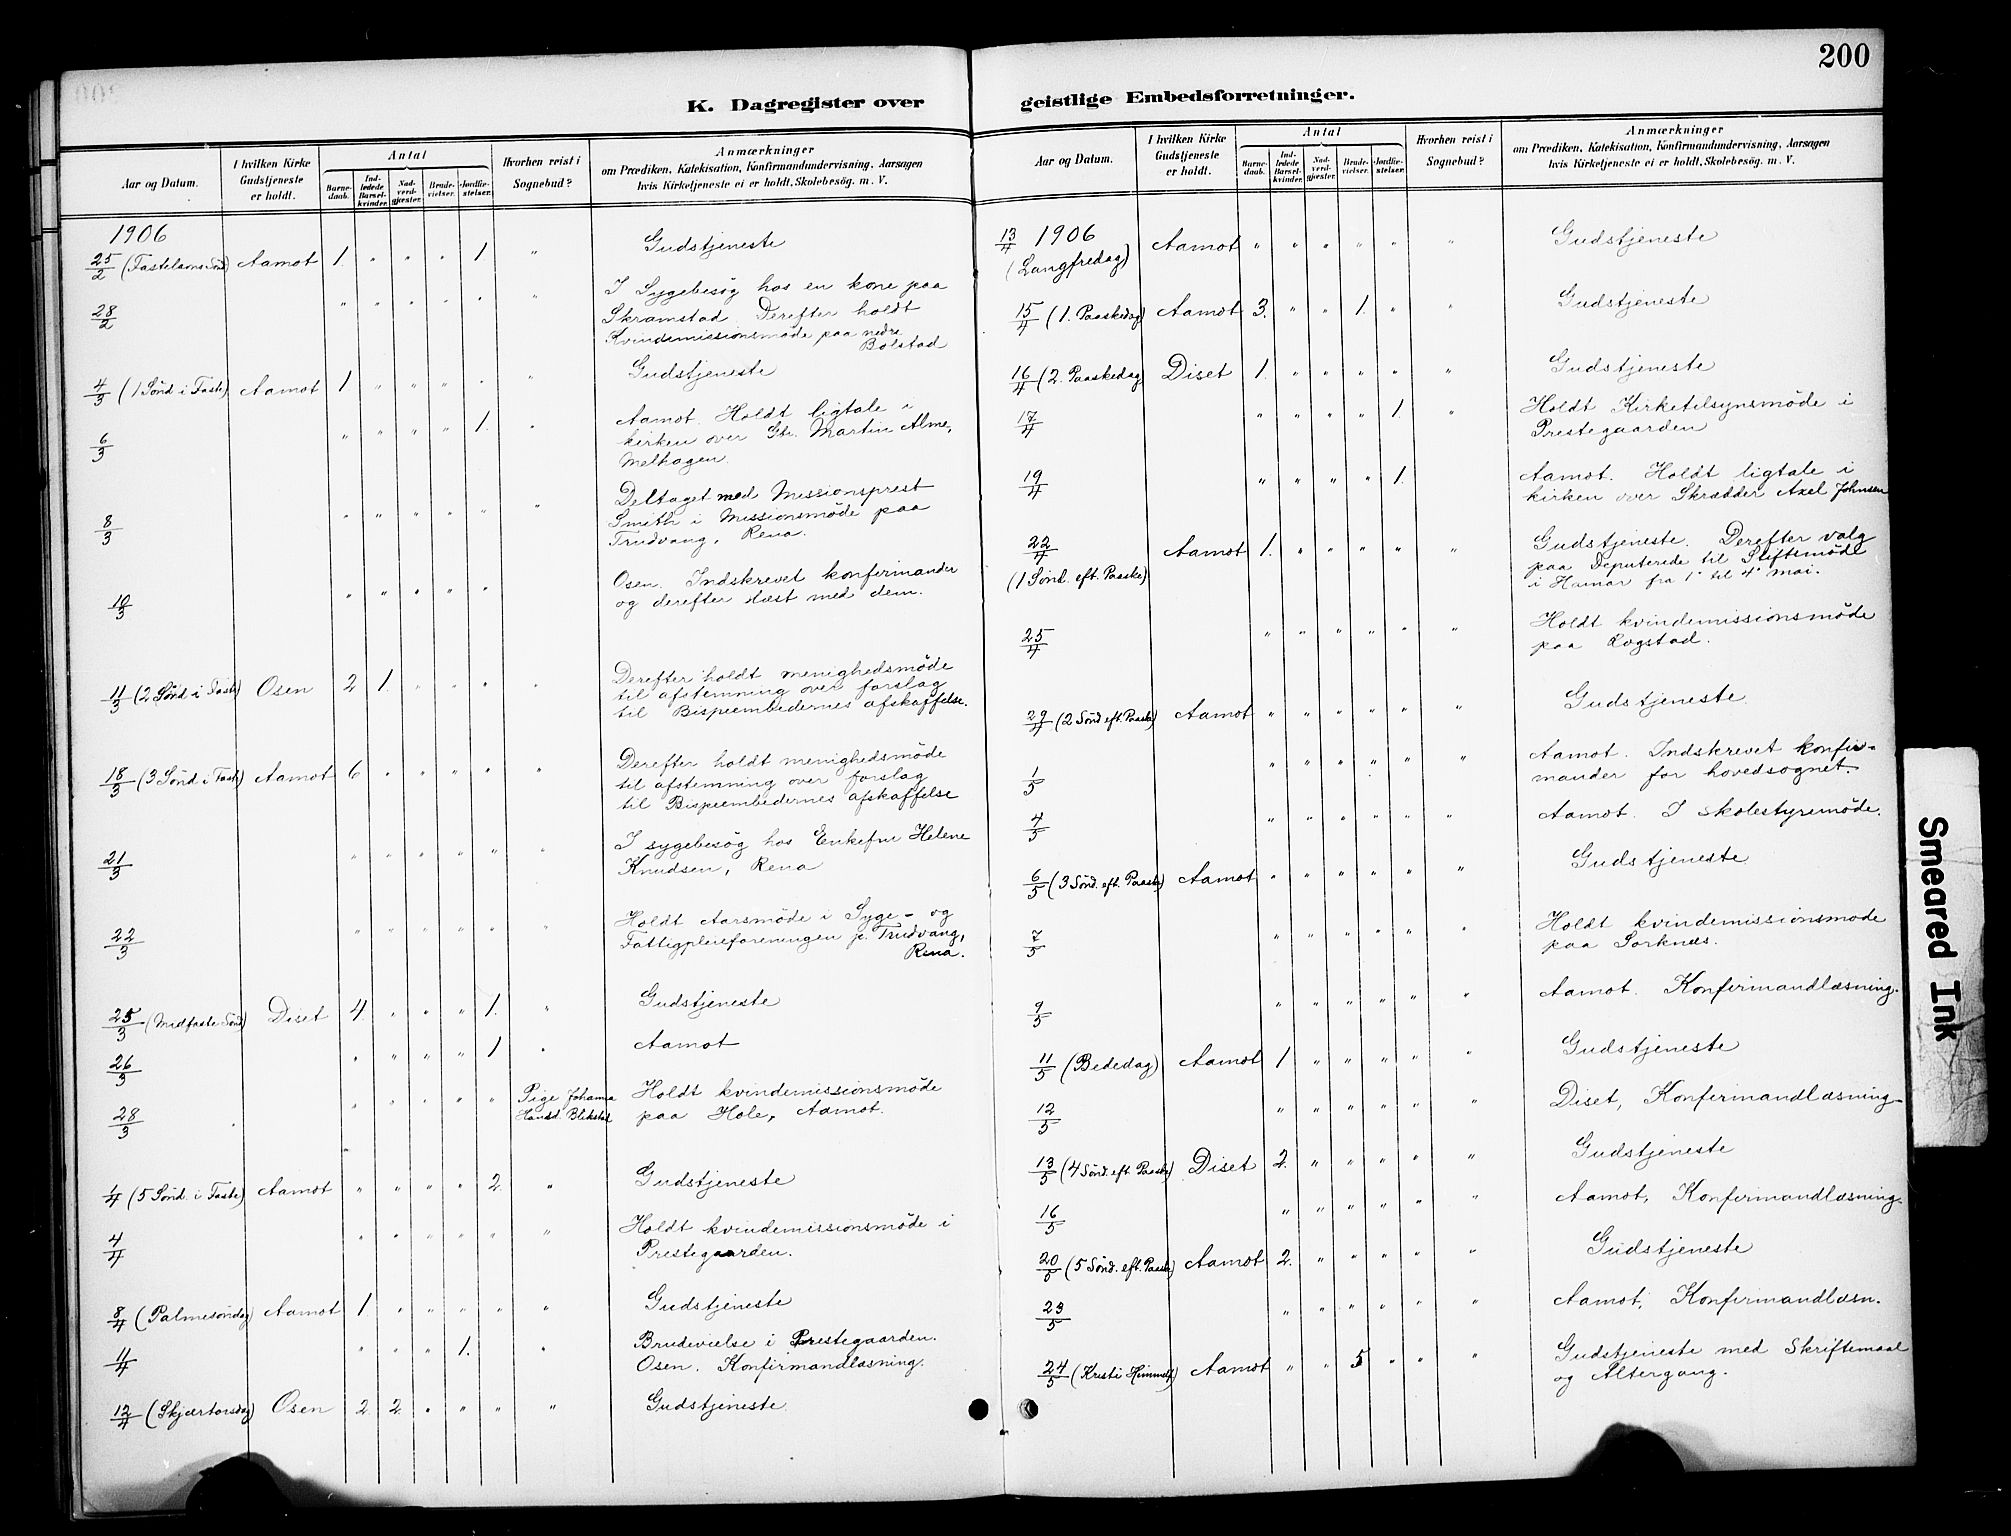 200
K. Dagregister over
geistlige Embedsforretninger.
Aar og Datum.
I hvilken Kirke Gudstjeneste er holdt.
Antal
Barne-daab.
Ind-ledede Barsel-kvinder.
Nad-verd-gjester.
Brude-vielser.
Jordfæ-stelser.
Hvorhen reist i Sognebud?
Anmærkninger
om Prædiken, Katekisation, Konfirmandundervisning, Aarsagen
hvis Kirketjeneste ei er holdt, Skolebesøg. m. V.
1906
25/2 (Fastelavns Sönd) Aamot 1. " " " 1 " Gudstjeneste
28/2 " " " " " " I Sygebesög hos en kone paa
Skramstad. Derefter holdt
Kvindemissionsmöde paa nedre
Bolstad
4/3 (1 Sönd i Faste) Aamot 1 " " " " " Gudstjeneste
6/3 " " " " 1. " Aamot. Holdt ligtale i
kirken over Martin Alme,
Melhagen.
8/3 " " " " " " Deltaget med Missionsprest
Smith i Missionsmöde paa
Trudvang, Rena.
10/3 " " " " " Osen. Indskrevet konfirmander
og derefter læst med dem.
11/3 (2 Sönd. i Faste) Osen 2 1. " " " " Derefter holdt menighedsmöde
til afstemning over forslag
til Bispeembedernes afskaffelse.
18/3 (3 Sönd i Faste) Aamot 6 " " " " " Derefter holdt menighedsmöde
til afstemning over forslag
til Bispeembedernes afskaffelse
21/3 " " " " " " I sygebesög hos Enkefru Helene
Knudsen, Rena
22/3 " " " " " " Holdt Aarsmöde i Syge- og
Fattigpleieforeningen p. Trudvang,
Rena.
25/3 (Midfaste Sönd) Diset 4. " " " 1. " Gudstjeneste
26/3 " " " " 1 " Aamot
28/3 " " " " " Pige Johanna Holdt kvindemissionsmöde
Hansd. Blikstad paa Hole, Aamot.
1/4 (5 Sönd. i Faste) Aamot " " " " 2 " Gudstjeneste
4/4 " " " " " " Holdt kvindemissionsmöde i
Prestegaarden.
8/4 (Palmesöndag) Aamot 1. " " " " " Gudstjeneste
11/4 " " " 1. " Brudevielse i Prestegaarden.
Osen. Konfirmandlæsning.
12/4 (Skjærtorsdag) Osen 2 2 " " " " Gudstjeneste
Aar og Datum.
I hvilken Kirke Gudstjeneste er holdt.
Antal
Barne-daab.
Ind-ledede Barsel-kvinder.
Nad-verd-gjester.
Brude-vielser.
Jordfæ-stelser.
Hvorhen reist i Sognebud?
Anmærkninger
om Prædiken, Katekisation, Konfirmandundervisning, Aarsagen
hvis Kirketjeneste ei er holdt, Skolebesøg. m. V.
13/4 1906 Aamot " " " " " " Gudstjeneste
(Langfredag)
15/4 (1. Paaskedag) Aamot 3. " " 1. " " Gudstjeneste
16/4 (2. Paaskedag Diset 1. " " " " " Gudstjeneste
17/4 " " " " 1 " Holdt Kirketilsynsmöde i
Prestegaarden
19/4 " " " " 1. Aamot. Holdt ligtale i
kirken over Skrædder Axel Johnsen
22/4 Aamot 1. " " " " " Gudstjeneste. Derefter valg
(1 Sönd. eft. Paaske) paa Deputerede til Stiftsmöde
i Hamar fra 1' til 4' mai.
25/4 " " " " " " Holdt kvindemissionsmöde
paa Logstad.
29/4 (2 Sönd eft. Paaske) Aamot " " " " " " Gudstjeneste
1/5 " " " " " " Aamot. Indskrevet konfir-
mander for hovedsognet.
4/5 " " " " " " Aamot. I skolestyremöde.
6/5 (3 Sönd. eft. Paaske) Aamot " " " " " " Gudstjeneste
7/5 " " " " " " Holdt kvindemissionsmöde
paa Sorknæs.
9/5 " " " " " " Aamot. Konfirmandlæsning.
11/5 (Bededag) Aamot 1 " " " " " Gudstjeneste
12/5 " " " " " " Diset, Konfirmandlæsning
13/5 (4 Sönd. eft. Paaske) Diset 2. " " " " " Gudstjeneste
16/5 " " " " " " Aamot, Konfirmandlæsning.
20/5 (5 Sönd. eft. Paaske) Aamot 2. " " " " " Gudstjeneste
23/5 " " " " " " Aamot, Konfirmandlæsn.
24/5 (Kristi Himmelf) Aamot " " 5 " " " Gudstjeneste med Skriftemaal
og Altergang.
Smeared Ink